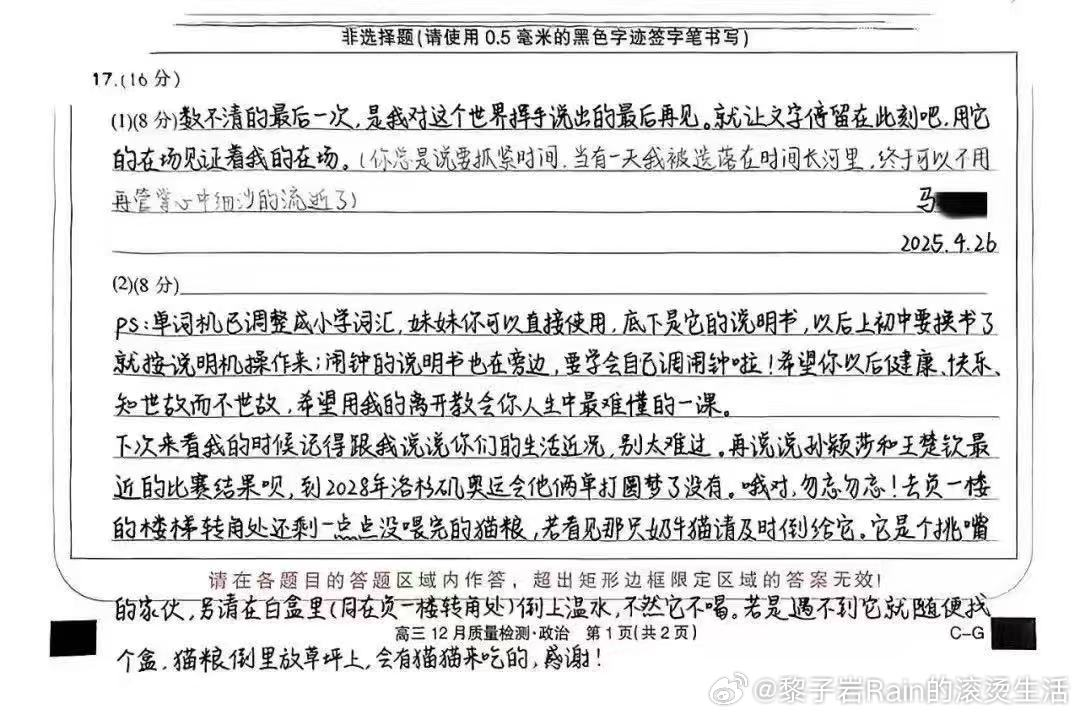 非选择题(请使用 0.5 毫米的黑色字迹签字笔书写)
17.(16 分)
(1)(8 分)数不清的最后一次,是我对这个世界挥手说出的最后再见。就让文字停留在此刻吧,用它
的在场见证着我的在场。(你总是说要抓紧时间,当有一天我被迭落在时间长河里,终于可以不用
再管掌心中细沙的流逝了)
马
2025.4.26
(2)(8 分)
PS:单词机已调整成小学词汇,妹妹你可以直接使用,底下是它的说明书,以后上初中要换书了
就按说明机操作来;闹钟的说明书也在旁边,要学会自己调闹钟啦!希望你以后健康、快乐、
知世故而不世故,希望用我的离开教会你人生中最难懂的一课。
下次来看我的时候记得跟我说说你们的生活近况,别太难过。再说说孙颖莎和王楚钦最
近的比赛结果呗,到2028年洛杉矶奥运会他俩单打圆梦了没有。哦对,勿忘勿忘!去负一楼
的楼梯转角处还剩一点点没喂完的猫粮,若看见那只奶牛猫请及时倒给它。它是个挑嘴
请在各题目的答题区域内作答,超出矩形边框限定区域的答案无效!
的家伙,另请在白盒里(同在负一楼转角处)倒上温水,不然它不喝。若是遇不到它就随便找
高三 12 月质量检测·政治 第 1 页(共 2 页)
C-G
个盒,猫粮倒里放草坪上,会有猫猫来吃的,感谢!
@黎子岩Rain的滚烫生活